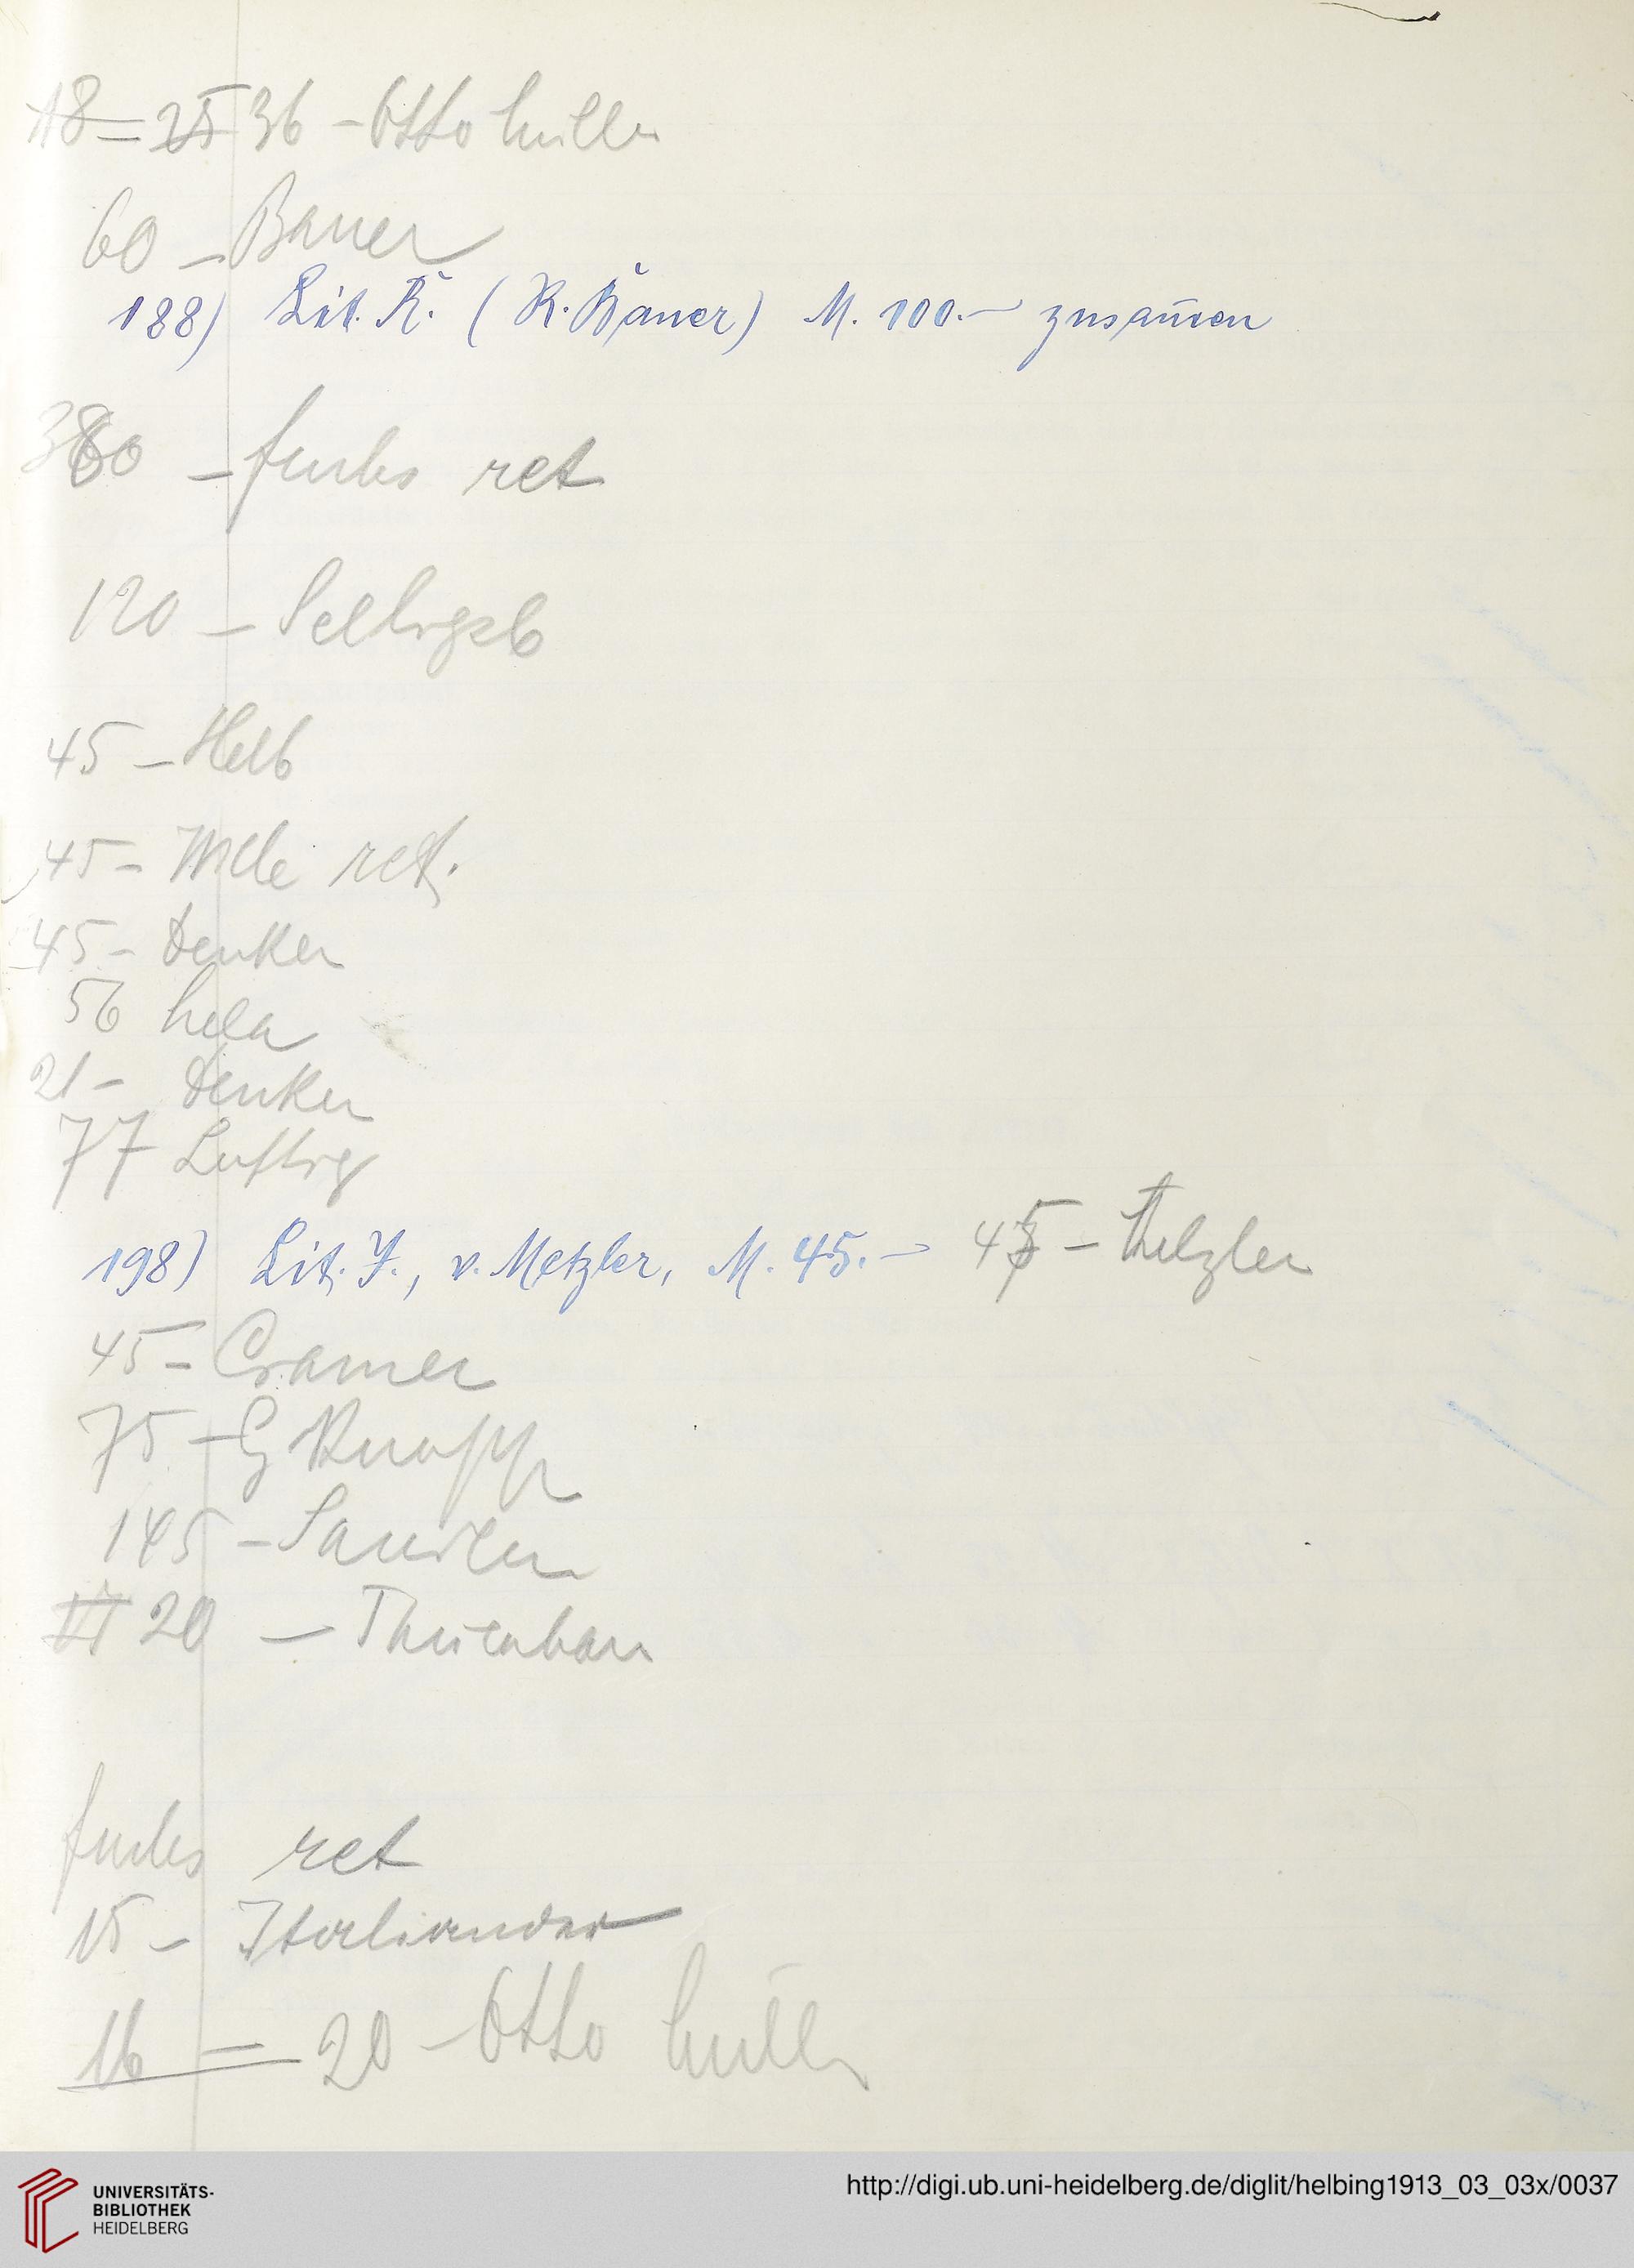 18 = 25 36 - Otto
60 - Bauer
188) Lit. R. (R. Bauer) M. 100.- zusam̄en
380 - fuchs ret
120 - Seligsb
45 - Helb
45 - ret.
45 - Denker
56 hela
21 - Denker
77
198) Lit. J., v. Metzler, M. 45.- 45 - Metzler
45 - Cramer
75 - G Knopp
145 -
17 20 -
fuchs ret
15 - Italiander
16 = 20 - Otto
UNIVERSITÄTS-
BIBLIOTHEK
HEIDELBERG
http://digi.ub.uni-heidelberg.de/diglit/helbing1913_03_03x/0037